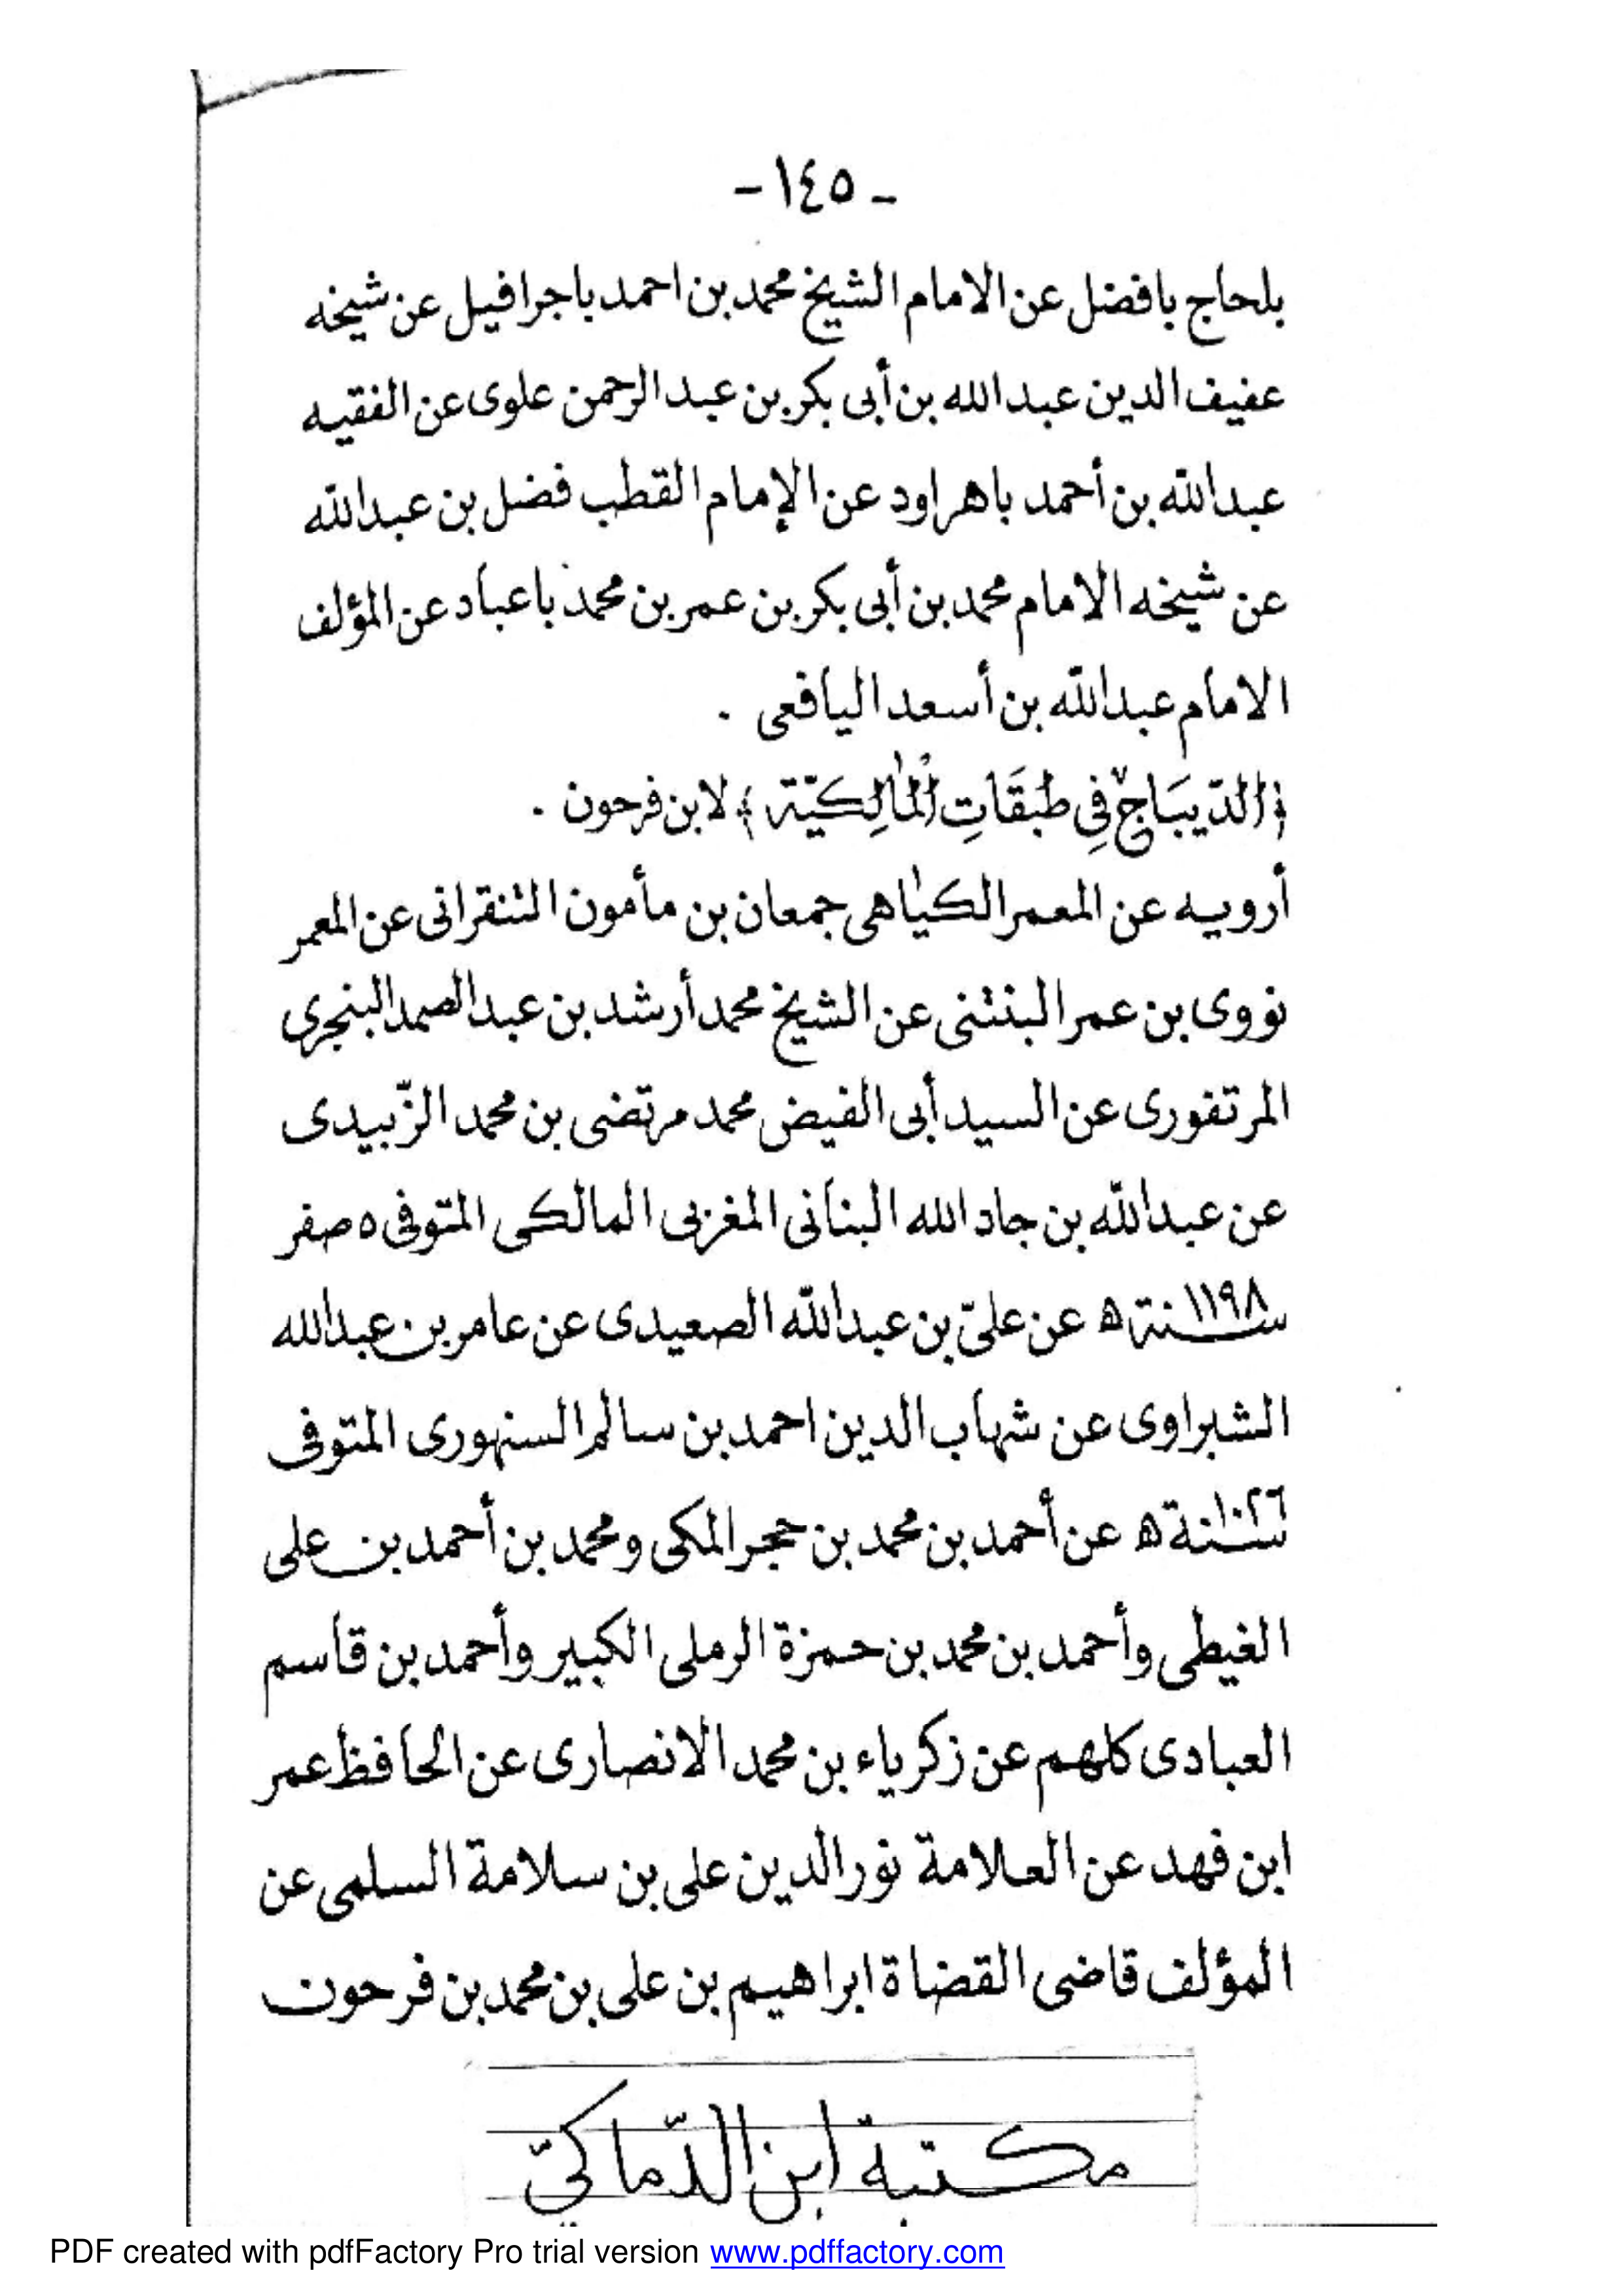 - ١٤٥ -
بلحاج بافضل عن الامام الشيخ محمد بن احمد باجرافيل عن شيخه
عفيف الدين عبد الله بن أبى بكر بن عبد الرحمن علوى عن الفقيه
عبد الله بن أحمد باهراود عن الإمام القطب فضل بن عبد الله
عن شيخه الامام محمد بن أبى بكر بن عمر بن محمد باعباد عن المؤلف
الامام عبد الله بن أسعد اليافعى .
﴿الدّيبَاجُ فِى طَبَقَاتِ الْمَالِكيّة﴾ لابن فرحون .
أرويه عن المعمر الكياهى جمعان بن مأمون التنقرانى عن المعمر
نووى بن عمر البنتنى عن الشيخ محمد أرشد بن عبد الصمد البنجرى
المرتفورى عن السيد أبى الفيض محمد مرتضى بن محمد الزّبيدى
عن عبد الله بن جاد الله البنانى المغربى المالكى المتوفى ٥ صفر
سنة ١١٩٨ ه عن علىّ بن عبد الله الصعيدى عن عامر بن عبد الله
الشبراوى عن شهاب الدين احمد بن سالم السنهورى المتوفى
سنة ١٠٢٦ ه عن أحمد بن محمد بن حجر المكى ومحمد بن أحمد بن على
الغيطى وأحمد بن محمد بن حمزة الرملى الكبير وأحمد بن قاسم
العبادى كلهم عن زكرياء بن محمد الانصارى عن الحافظ عمر
ابن فهد عن العلامة نور الدين على بن سلامة السلمى عن
المؤلف قاضى القضاة ابراهيم بن على بن محمد بن فرحون
مكتبة ابن الدّماكيّ
PDF created with pdfFactory Pro trial version www.pdffactory.com